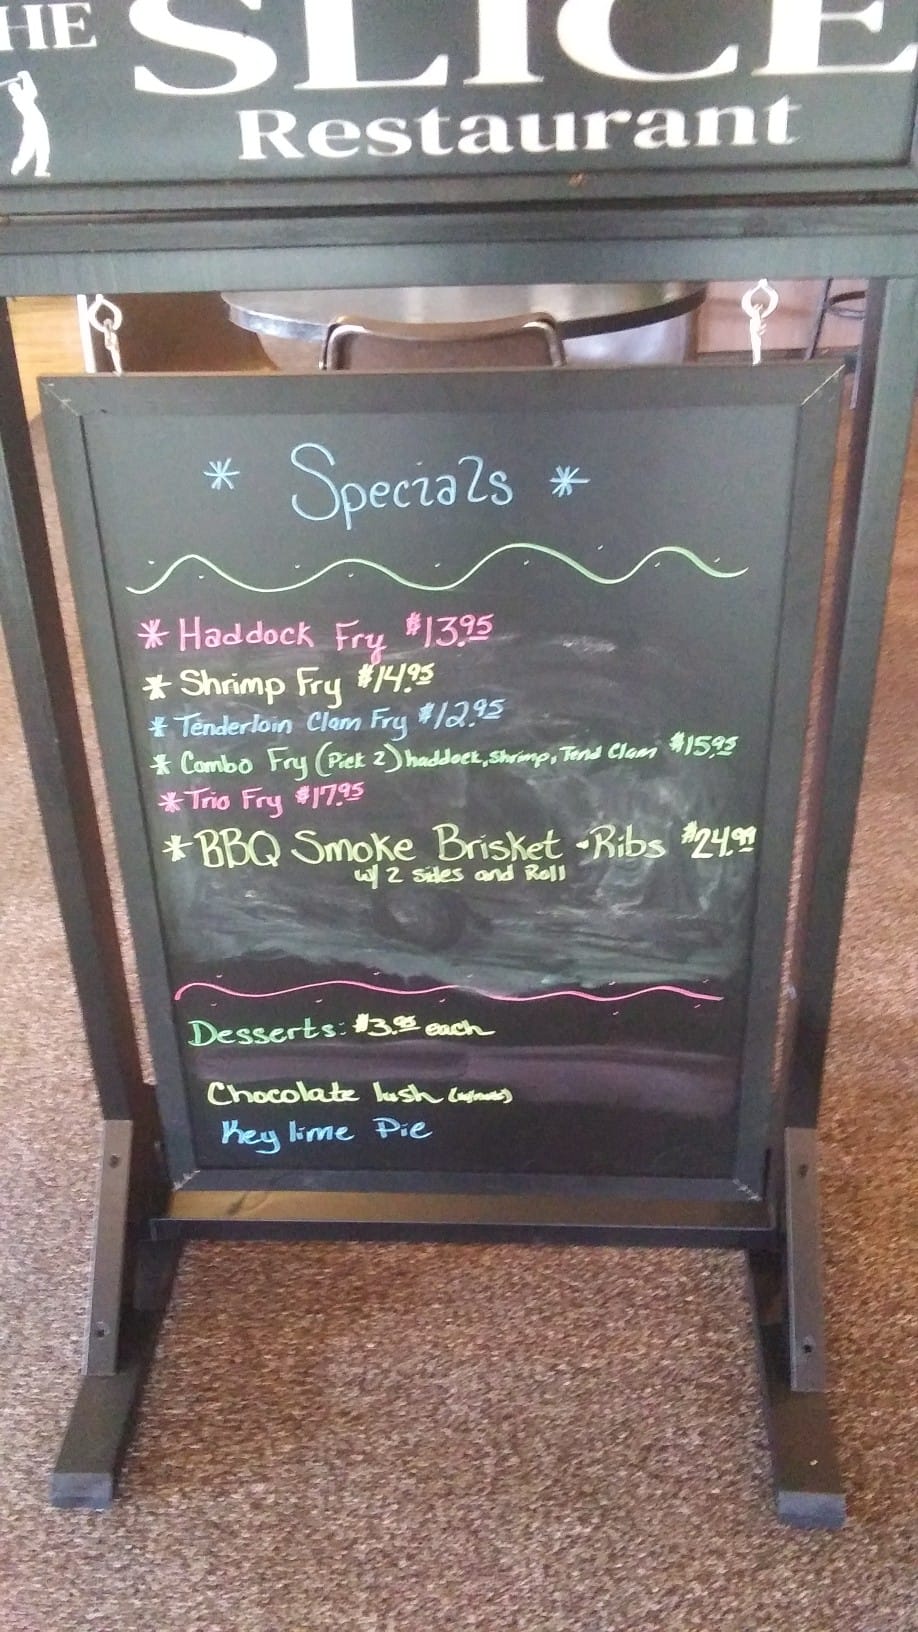 THE SLICE
Restaurant
* Specials *
* Haddock Fry $13.95
* Shrimp Fry $14.95
* Tenderloin Clam Fry $12.95
* Combo Fry (Pick 2) haddock, Shrimp, Tend Clam $15.95
* Trio Fry $17.95
* BBQ Smoke Brisket - Ribs $24.99
w/ 2 sides and Roll
Desserts: $3.95 each
Chocolate lush (w/nuts)
Key lime Pie